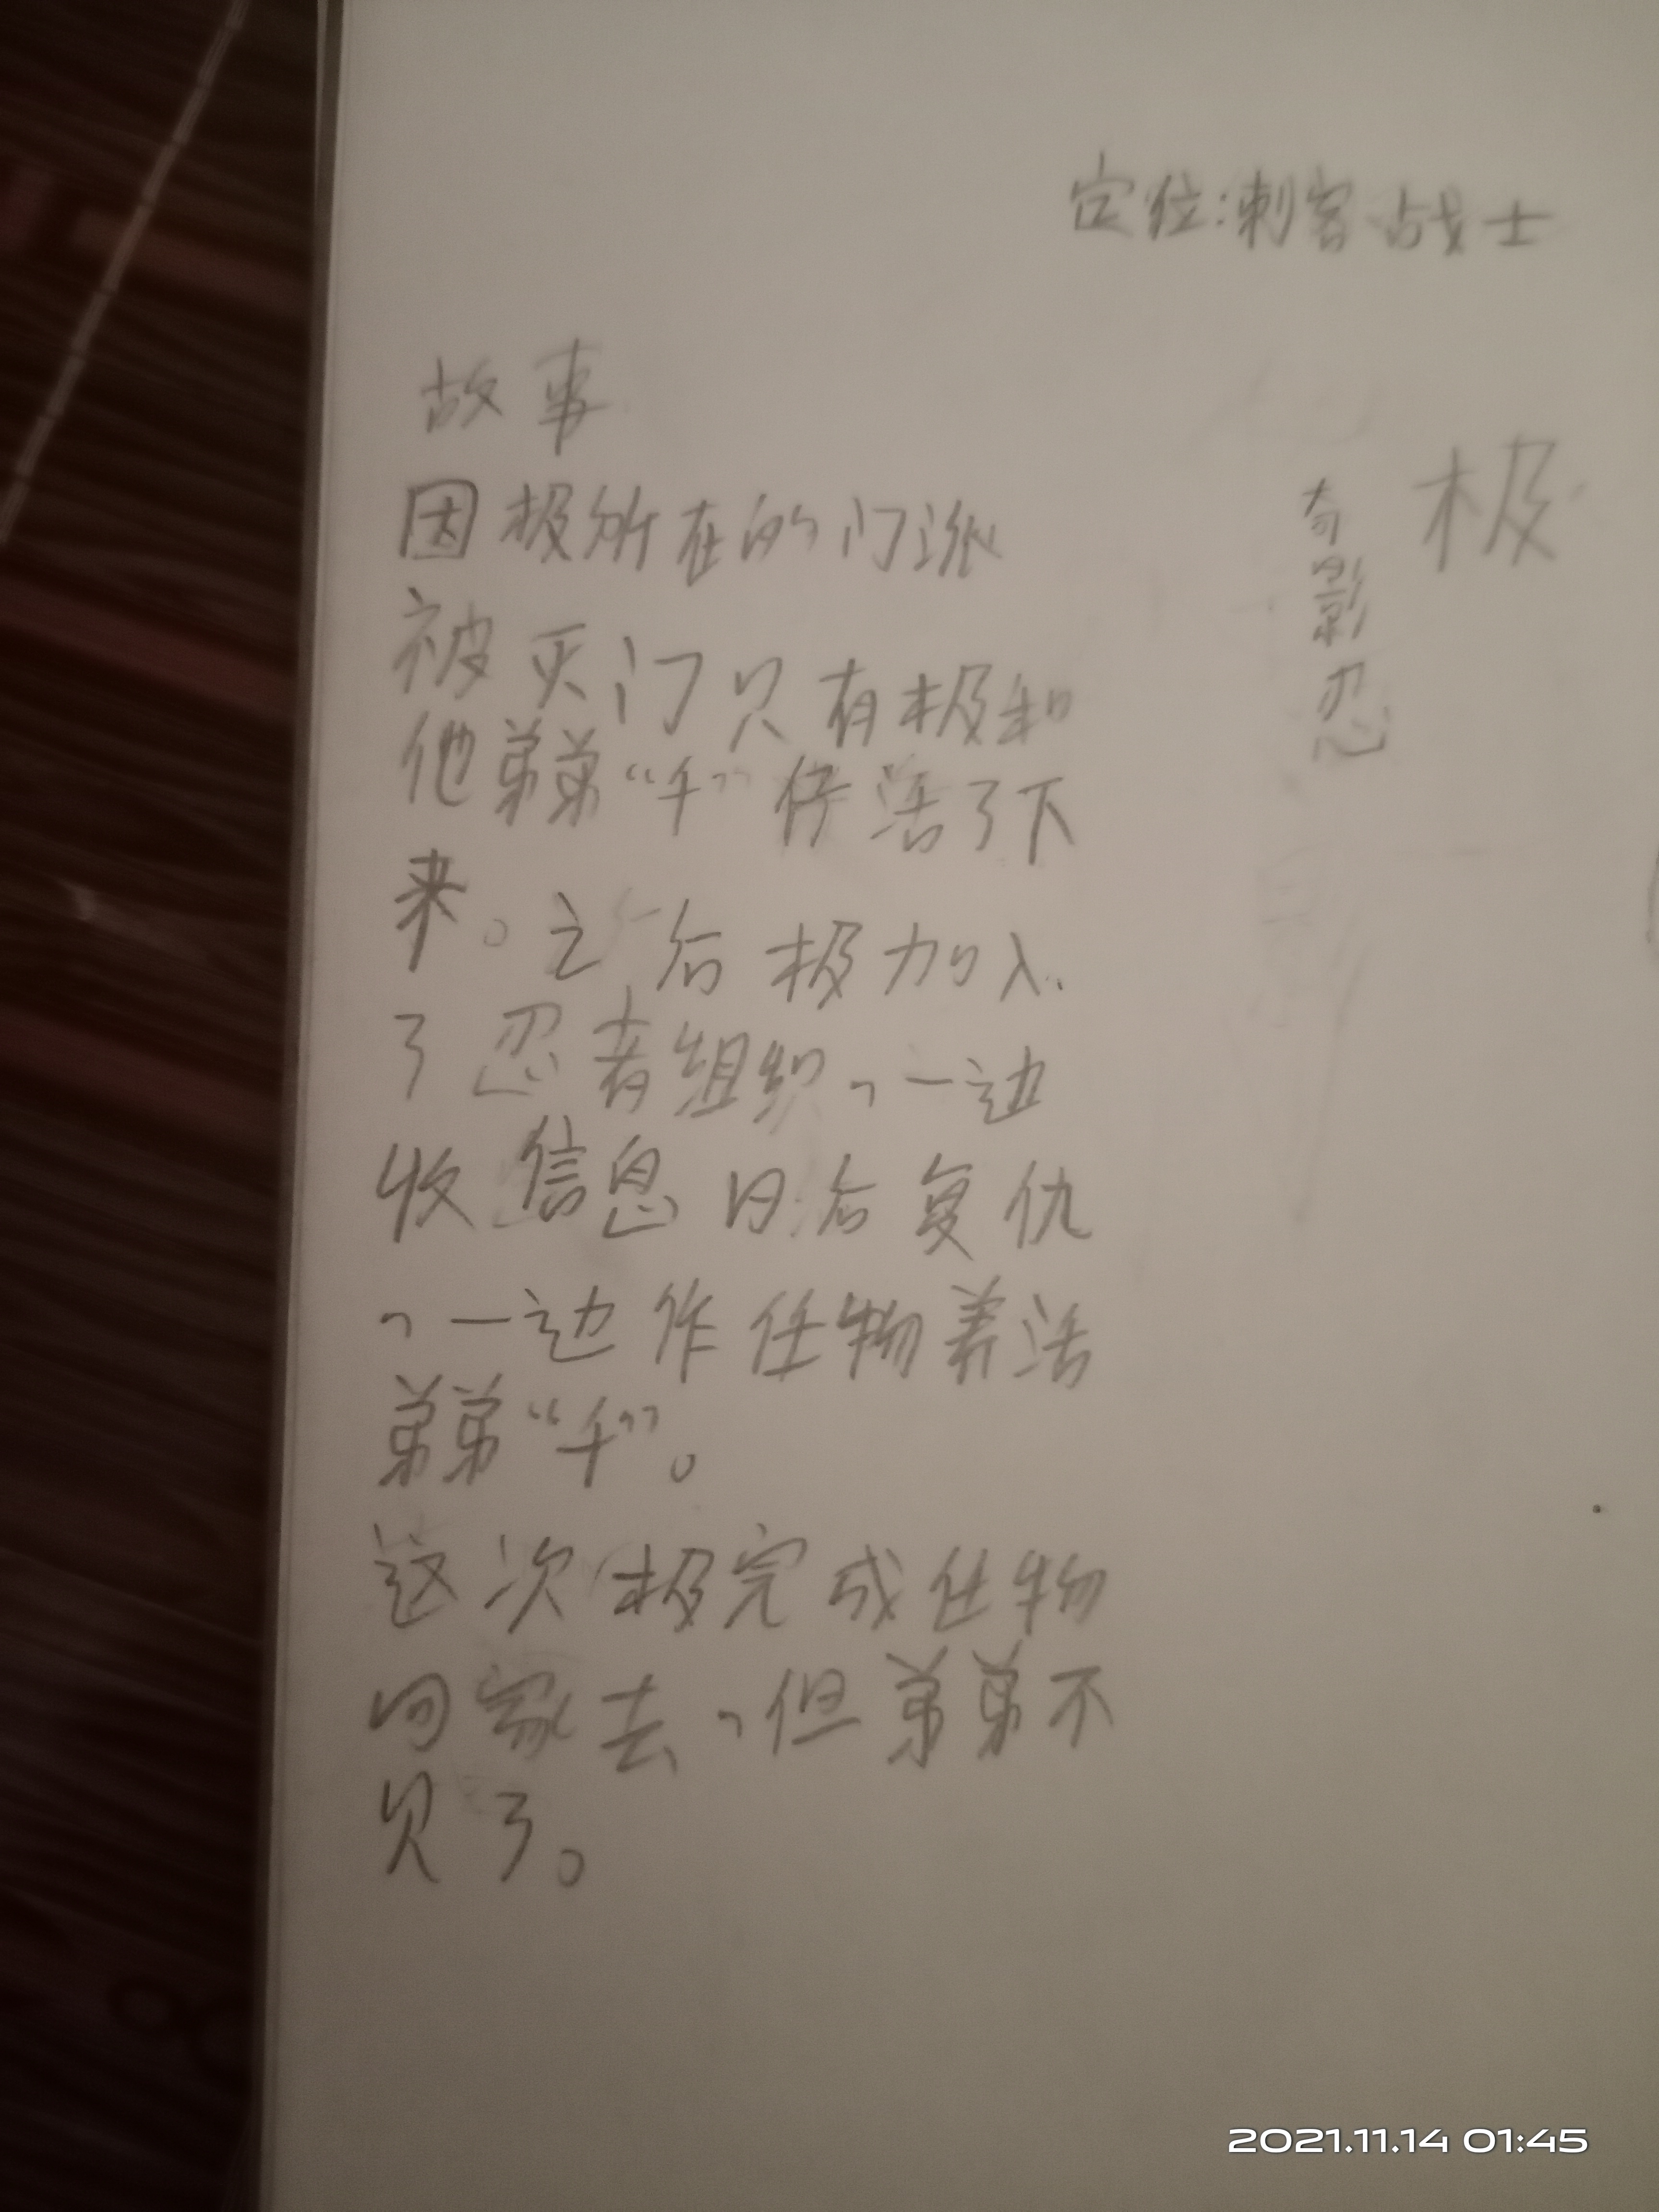 定位:刺客 战士
极
奇影忍
故事
因极所在的门派
被灭门只有极和
他弟弟“千”存活了下
来。之后极加入
了忍者组织、一边
收信息日后复仇
、一边作任物养活
弟弟“千”。
这次极完成任物
回家去、但弟弟不
见了。
2021.11.14 01:45